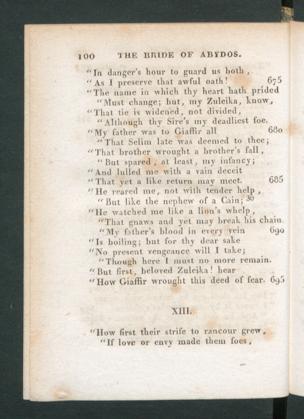 100 THE BRIDE OF ABYDOS.
"In danger's hour to guard us both,
"As I preserve that awful oath! 675
"The name in which thy heart hath prided
"Must change; but, my Zuleika, know,
"That tie is widened, not divided,
"Although thy Sire's my deadliest foe.
"My father was to Giaffir all 680
"That Selim late was deemed to thee;
"That brother wrought a brother's fall,
"But spared, at least, my infancy;
"And lulled me with a vain deceit
"That yet a like return may meet. 685
"He reared me, not with tender help,
"But like the nephew of a Cain; 30
"He watched me like a lion's whelp,
"That gnaws and yet may break his chain.
"My father's blood in every vein 690
"Is boiling; but for thy dear sake
"No present vengeance will I take;
"Though here I must no more remain.
"But first, beloved Zuleika! hear
"How Giaffir wrought this deed of fear. 695
XIII.
"How first their strife to rancour grew,
"If love or envy made them foes,